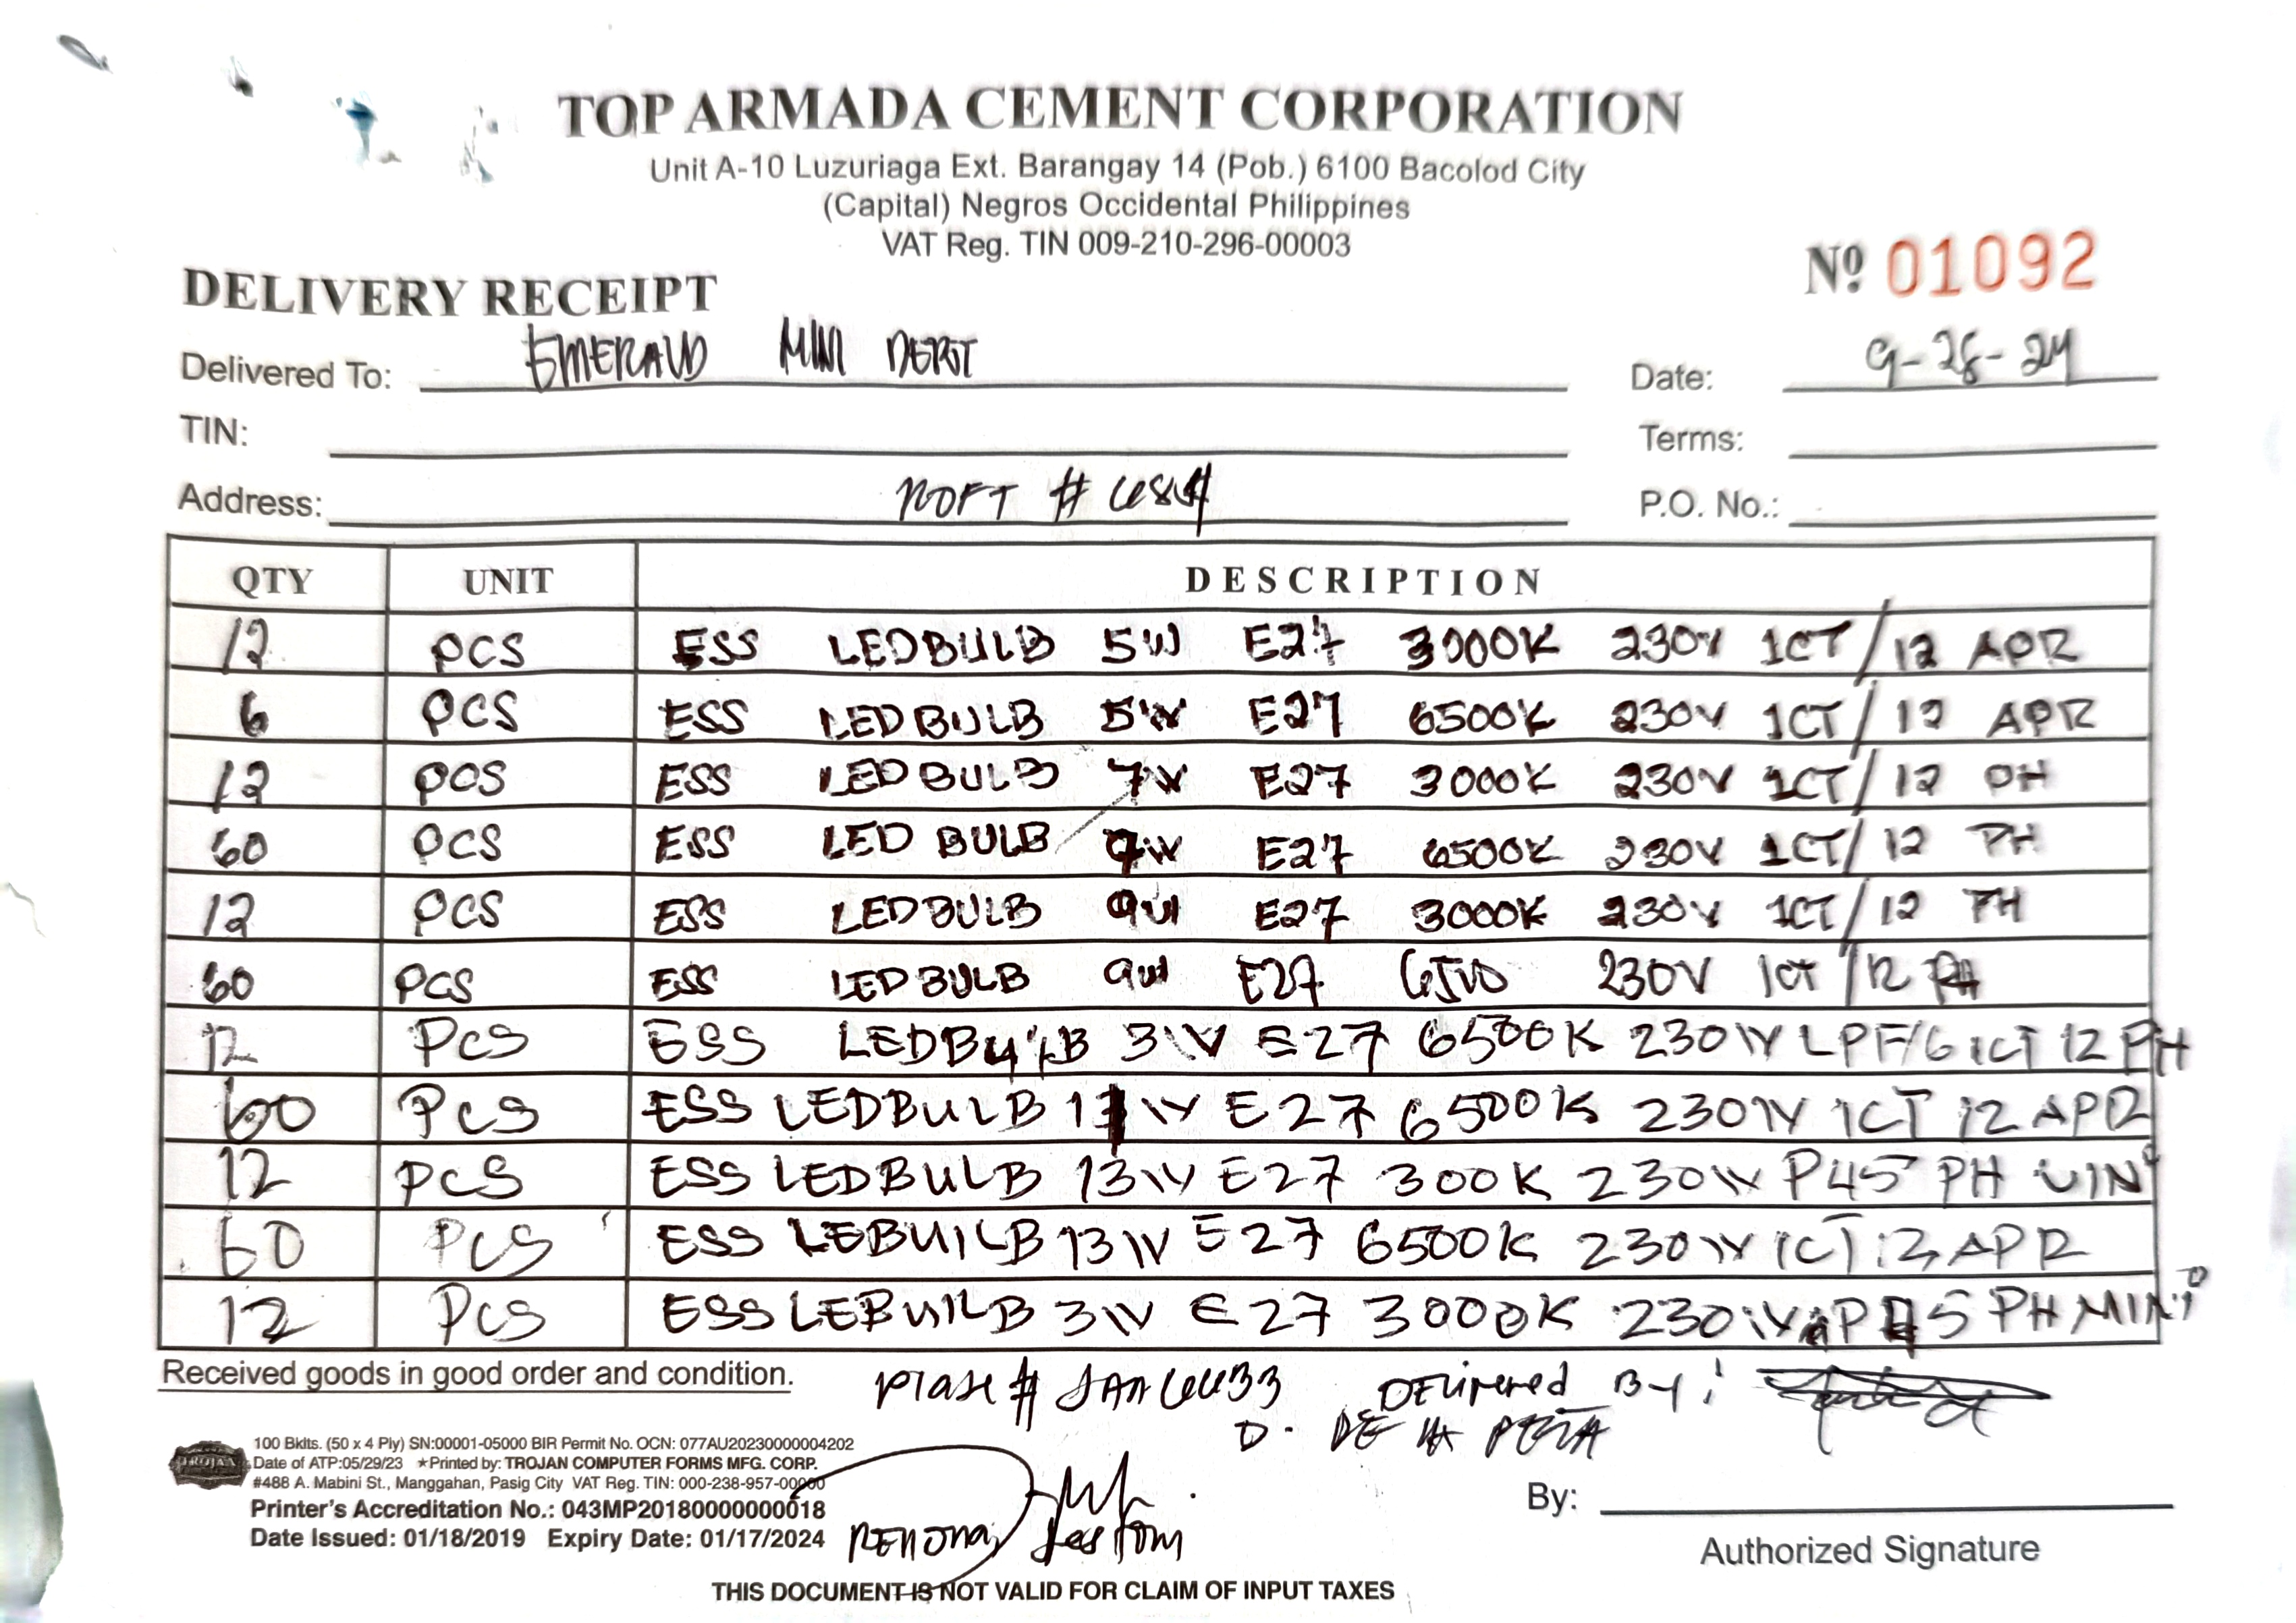 TOP ARMADA CEMENT CORPORATION
Unit A-10 Luzuriaga Ext. Barangay 14 (Pob.) 6100 Bacolod City
(Capital) Negros Occidental Philippines
VAT Reg. TIN 009-210-296-00003
DELIVERY RECEIPT
Nº 01092
Delivered To: EMERALD MINI DEPOT
Date: 9-28-24
TIN:
Terms:
Address: #
P.O. No.:
QTY UNIT DESCRIPTION
12 PCS ESS LEDBULB 5W E27 3000K 230V 1CT/12 APR
6 PCS ESS LEDBULB 5W E27 6500K 230V 1CT/12 APR
12 PCS ESS LEDBULB 7W E27 3000K 230V 1CT/12 PH
60 PCS ESS LED BULB 7W E27 6500K 230V 1CT/12 PH
12 PCS ESS LEDBULB 9W E27 3000K 230V 1CT/12 PH
60 PCS ESS LEDBULB 9W E27 6500 230V 1CT/12 PH
12 PCS ESS LEDBULB 3W E27 6500K 230V LPF/6 1CT 12 PH
60 PCS ESS LEDBULB 11W E27 6500K 230V 1CT 12 APR
12 PCS ESS LEDBULB 13W E27 300K 230V P45 PH
60 PCS ESS LEBUILB 13W E27 6500K 230V 1CT 12 APR
12 PCS ESS LEBUILB 3W E27 3000K 230V P45 PH MINI
Received goods in good order and condition.
# Delivered By:
D. DE LA PEÑA
100 Bklts. (50 x 4 Ply) SN:00001-05000 BIR Permit No. OCN: 077AU20230000004202
TROJAN
Date of ATP:05/29/23 ★Printed by: TROJAN COMPUTER FORMS MFG. CORP.
#488 A. Mabini St., Manggahan, Pasig City VAT Reg. TIN: 000-238-957-00000
Printer's Accreditation No.: 043MP20180000000018
Date Issued: 01/18/2019 Expiry Date: 01/17/2024
By:
Authorized Signature
THIS DOCUMENT IS NOT VALID FOR CLAIM OF INPUT TAXES